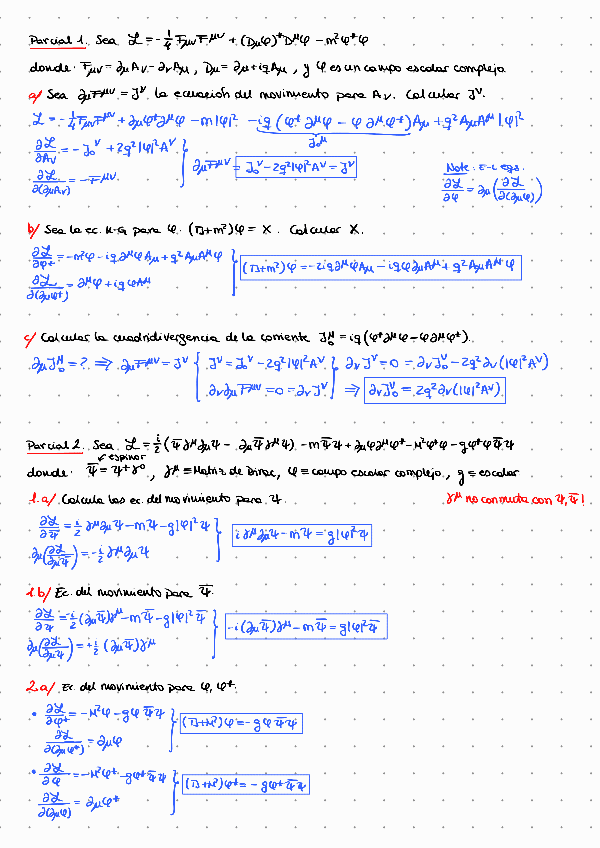 Parcial 1. Sea ℒ = -¼ FμνF^μν + (Dμφ)*D^μφ - m²φ*φ
donde: Fμν = ∂μAν - ∂νAμ, Dμ = ∂μ + iqAμ, y φ es un campo escalar complejo.
a/ Sea ∂μF^μν = J^ν la ecuación del movimiento para Aν. Calcular J^ν.
ℒ = -¼ FμνF^μν + ∂μφ*∂^μφ - m|φ|² - iq(φ*∂^μφ - φ∂^μφ*)Aμ + q²AμA^μ|φ|²
J₀^μ
∂ℒ/∂Aν = -J₀^ν + 2q²|φ|²A^ν
∂ℒ/∂(∂μAν) = -F^μν
∂μF^μν = J₀^ν - 2q²|φ|²A^ν = J^ν
Note: E-L eqs.
∂ℒ/∂φ = ∂μ(∂ℒ/∂(∂μφ))
b/ Sea la ec. K-G para φ: (□+m²)φ = X. Calcular X.
∂ℒ/∂φ* = -m²φ - iq∂^μφAμ + q²AμA^μφ
∂ℒ/∂(∂μφ*) = ∂^μφ + iqφA^μ
(□+m²)φ = -2iq∂^μφAμ - iqφ∂μA^μ + q²AμA^μφ
c/ Calcular la cuadridivergencia de la corriente J₀^μ = iq(φ*∂^μφ - φ∂^μφ*).
∂μJ₀^μ = ? ⟹ ∂μF^μν = J^ν { J^ν = J₀^ν - 2q²|φ|²A^ν } ∂νJ^ν = 0 = ∂νJ₀^ν - 2q²∂ν(|φ|²A^ν)
∂ν∂μF^μν = 0 = ∂νJ^ν ⟹ ∂νJ₀^ν = 2q²∂ν(|φ|²A^ν)
Parcial 2. Sea ℒ = i/2(Ψ̄γ^μ∂μΨ - ∂μΨ̄γ^μΨ) - mΨ̄Ψ + ∂μφ∂^μφ* - M²φ*φ - gφ*φΨ̄Ψ
espinor
donde: Ψ̄ = Ψ†γ⁰, γ^μ ≡ Matriz de Dirac, φ ≡ campo escalar complejo, g ≡ escalar
1.a/ Calcula las ec. del movimiento para Ψ.
γ^μ no conmuta con Ψ, Ψ̄!
∂ℒ/∂Ψ̄ = i/2 γ^μ∂μΨ - mΨ - g|φ|²Ψ
∂μ(∂ℒ/∂∂μΨ̄) = -i/2 γ^μ∂μΨ
iγ^μ∂μΨ - mΨ = g|φ|²Ψ
1.b/ Ec. del movimiento para Ψ̄.
∂ℒ/∂Ψ = -i/2(∂μΨ̄)γ^μ - mΨ̄ - g|φ|²Ψ̄
∂μ(∂ℒ/∂∂μΨ) = +i/2(∂μΨ̄)γ^μ
-i(∂μΨ̄)γ^μ - mΨ̄ = g|φ|²Ψ̄
2.a/ Ec. del movimiento para φ, φ*.
• ∂ℒ/∂φ* = -M²φ - gφΨ̄Ψ
∂ℒ/∂(∂μφ*) = ∂μφ
(□+M²)φ = -gφΨ̄Ψ
• ∂ℒ/∂φ = -M²φ* - gφ*Ψ̄Ψ
∂ℒ/∂(∂μφ) = ∂μφ*
(□+M²)φ* = -gφ*Ψ̄Ψ